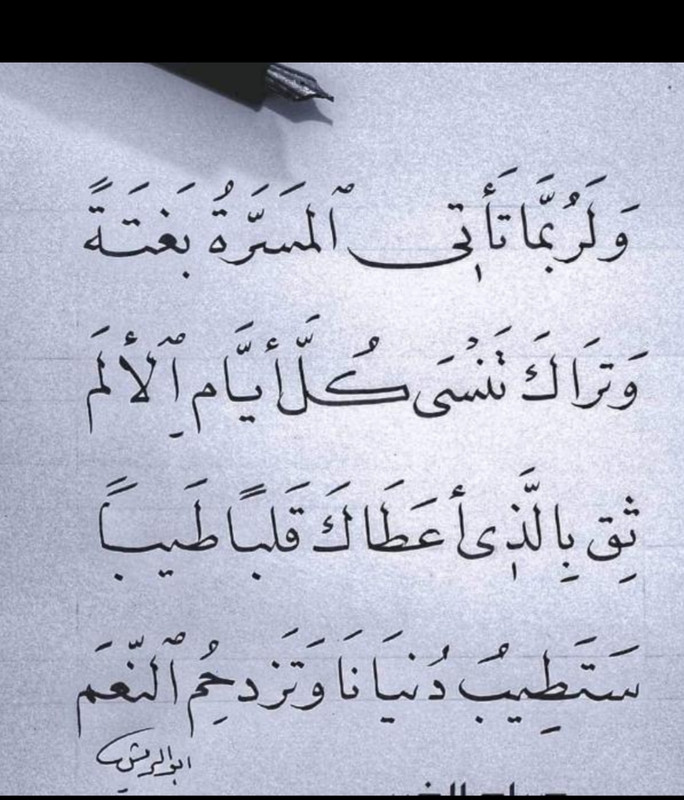 وَلَرُبَّمَا تَأتِي ٱلمَسَرَّةُ بَغتَةً
وَتَرَاكَ تَنْسَى كُلَّ أيَّامِ ٱلألَم
ثِق بِالَّذِى أعطَاكَ قَلبًا طَيبًا
سَتَطِيبُ دُنيَانَا وَتَزدحُم ٱلنّعَم
ابو الريش